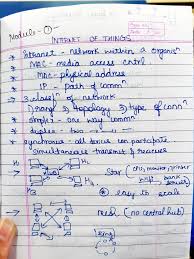 Module - ①
INTERNET OF THINGS
* Intranet - network within a organisⁿ
* MAC - media access cntrl
* MAC - physical address
IP - path of commⁿ
* 3 classⁿ of network
→ 1) range 2) topology 3) type of commⁿ
* simplex - one way commⁿ
* duplex - two
* synchronus - all focus can participate
simultaneous transmit & recieves
H₁ H₂
→ Star (
* easy to scale
→ (no central hub)
ring